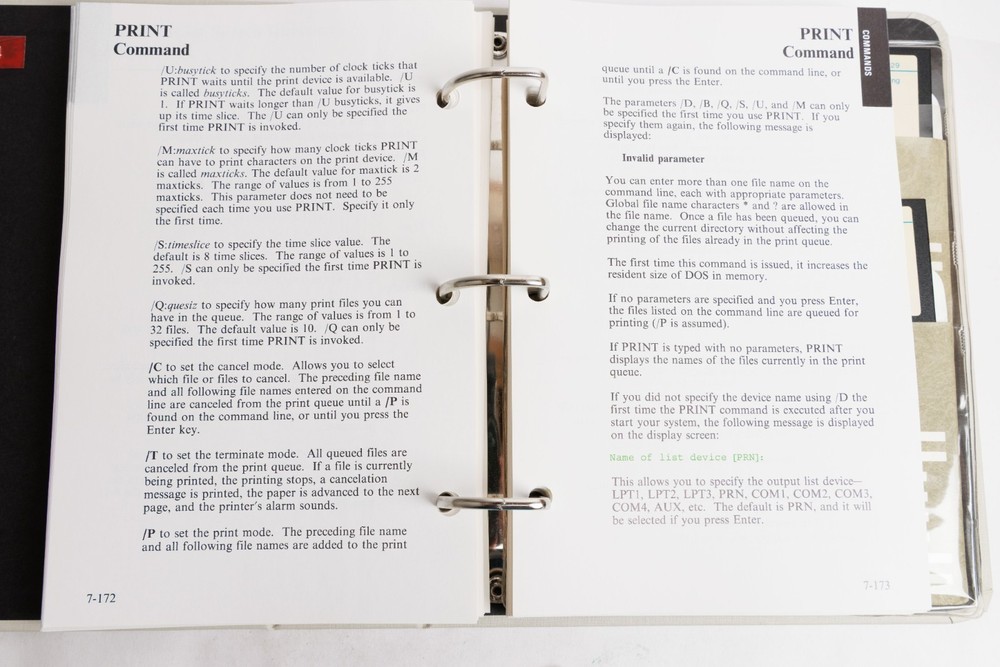 PRINT
Command
/U:busytick to specify the number of clock ticks that
PRINT waits until the print device is available. /U
is called busyticks. The default value for busytick is
1. If PRINT waits longer than /U busyticks, it gives
up its time slice. The /U can only be specified the
first time PRINT is invoked.
/M:maxtick to specify how many clock ticks PRINT
can have to print characters on the print device. /M
is called maxticks. The default value for maxtick is 2
maxticks. The range of values is from 1 to 255
maxticks. This parameter does not need to be
specified each time you use PRINT. Specify it only
the first time.
/S:timeslice to specify the time slice value. The
default is 8 time slices. The range of values is 1 to
255. /S can only be specified the first time PRINT is
invoked.
/Q:quesiz to specify how many print files you can
have in the queue. The range of values is from 1 to
32 files. The default value is 10. /Q can only be
specified the first time PRINT is invoked.
/C to set the cancel mode. Allows you to select
which file or files to cancel. The preceding file name
and all following file names entered on the command
line are canceled from the print queue until a /P is
found on the command line, or until you press the
Enter key.
/T to set the terminate mode. All queued files are
canceled from the print queue. If a file is currently
being printed, the printing stops, a cancelation
message is printed, the paper is advanced to the next
page, and the printer's alarm sounds.
/P to set the print mode. The preceding file name
and all following file names are added to the print
7-172
PRINT
Command
COMMANDS
queue until a /C is found on the command line, or
until you press the Enter.
The parameters /D, /B, /Q, /S, /U, and /M can only
be specified the first time you use PRINT. If you
specify them again, the following message is
displayed:
Invalid parameter
You can enter more than one file name on the
command line, each with appropriate parameters.
Global file name characters * and ? are allowed in
the file name. Once a file has been queued, you can
change the current directory without affecting the
printing of the files already in the print queue.
The first time this command is issued, it increases the
resident size of DOS in memory.
If no parameters are specified and you press Enter,
the files listed on the command line are queued for
printing (/P is assumed).
If PRINT is typed with no parameters, PRINT
displays the names of the files currently in the print
queue.
If you did not specify the device name using /D the
first time the PRINT command is executed after you
start your system, the following message is displayed
on the display screen:
Name of list device [PRN]:
This allows you to specify the output list device—
LPT1, LPT2, LPT3, PRN, COM1, COM2, COM3,
COM4, AUX, etc. The default is PRN, and it will
be selected if you press Enter.
7-173